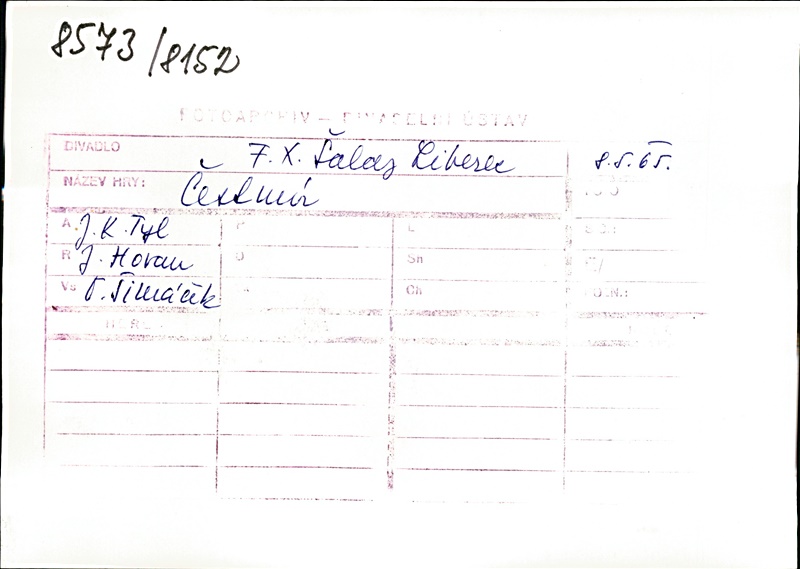 8573/8152
FOTOARCHIV – DIVADELNÍ ÚSTAV
DIVADLO F. X. Šaldy Liberec 8.5.65.
NÁZEV HRY: Čestmír
A. J. K. Tyl
R J. Horan
Sh
Vs O. Šimáček Ch